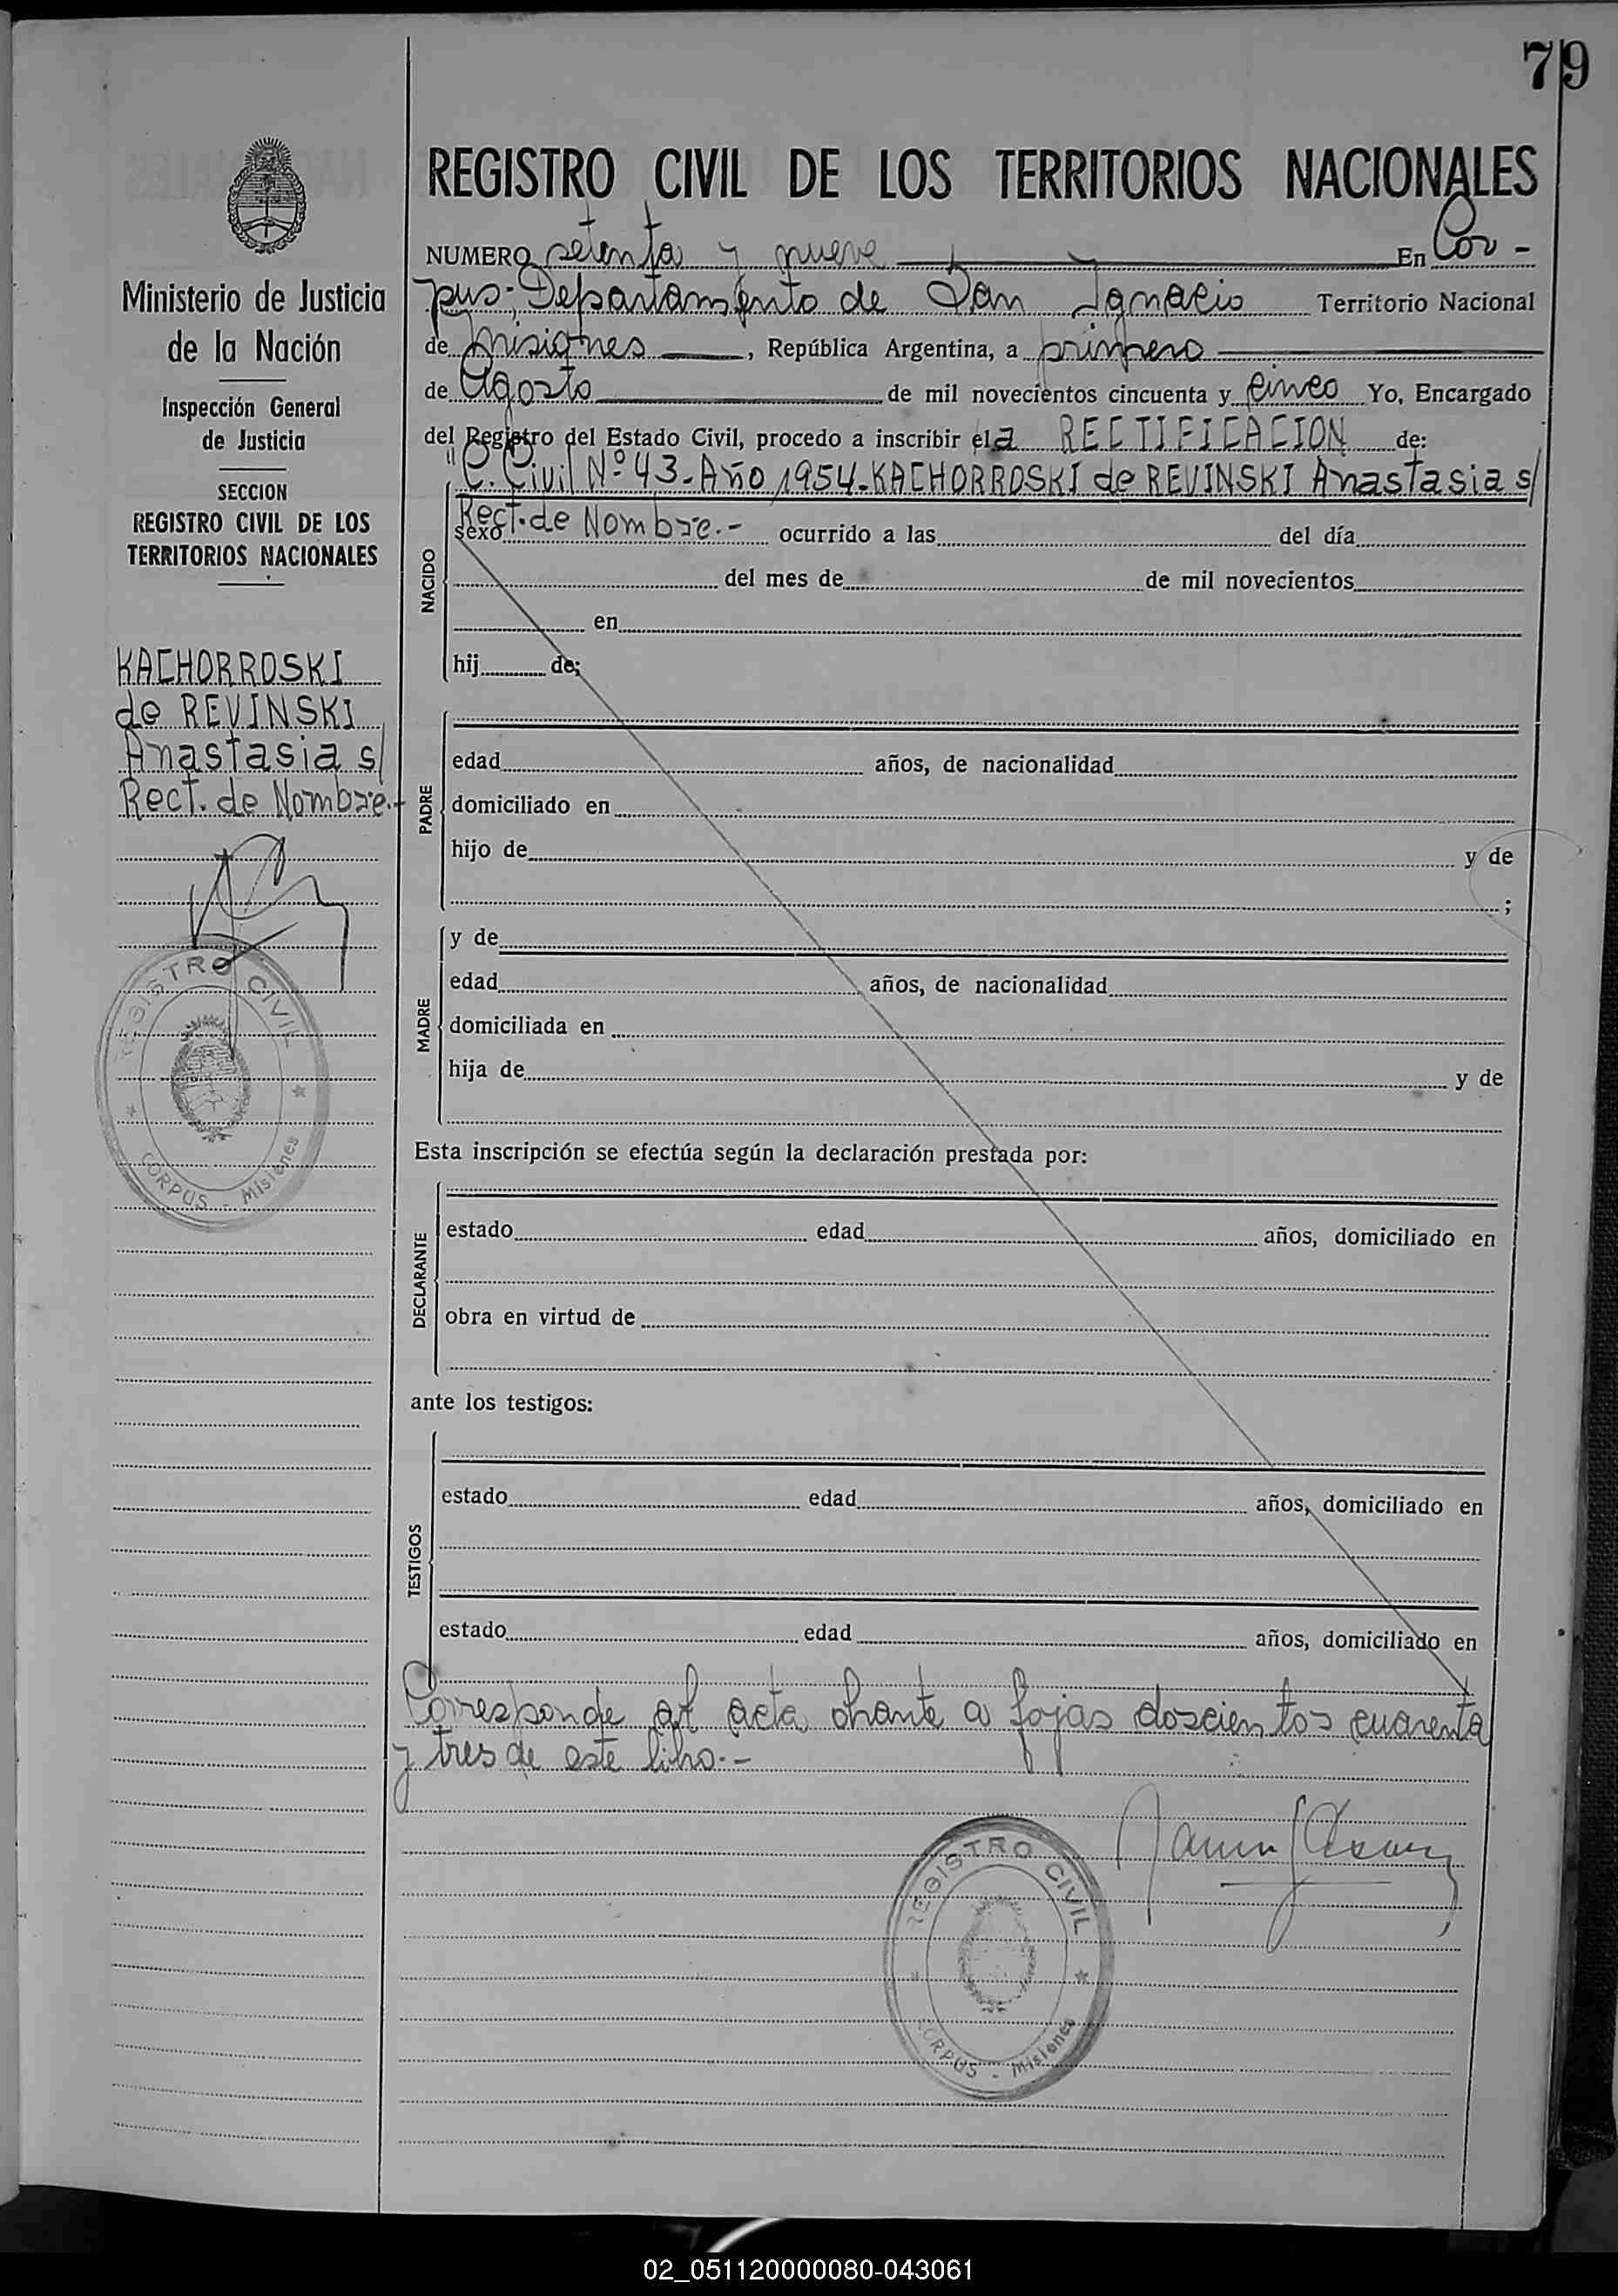 79
REGISTRO CIVIL DE LOS TERRITORIOS NACIONALES
NUMERO setenta y nueve En Cor-
pus; Departamento de San Ignacio Territorio Nacional
de Misiones, República Argentina, a primero
de Agosto de mil novecientos cincuenta y cinco Yo, Encargado
del Registro del Estado Civil, procedo a inscribir el a RECTIFICACION de:
"C. Civil Nº 43-Año 1954-KACHORROSKI de REVINSKI Anastasia s/
Rect. de Nombre.-
sexo ocurrido a las del día
del mes de de mil novecientos
en
hij de;
NACIDO
edad años, de nacionalidad
domiciliado en
hijo de y de
;
PADRE
y de
edad años, de nacionalidad
domiciliada en
hija de y de
MADRE
Esta inscripción se efectúa según la declaración prestada por:
estado edad años, domiciliado en
obra en virtud de
DECLARANTE
ante los testigos:
estado edad años, domiciliado en
estado edad años, domiciliado en
TESTIGOS
Corresponde al acta obrante a fojas doscientos cuarenta
y tres de este libro.-
REGISTRO CIVIL
CORPUS - Misiones
Ministerio de Justicia
de la Nación
Inspección General
de Justicia
SECCION
REGISTRO CIVIL DE LOS
TERRITORIOS NACIONALES
KACHORROSKI
de REVINSKI
Anastasia s/
Rect. de Nombre.-
REGISTRO CIVIL
CORPUS - Misiones
02_051120000080-043061